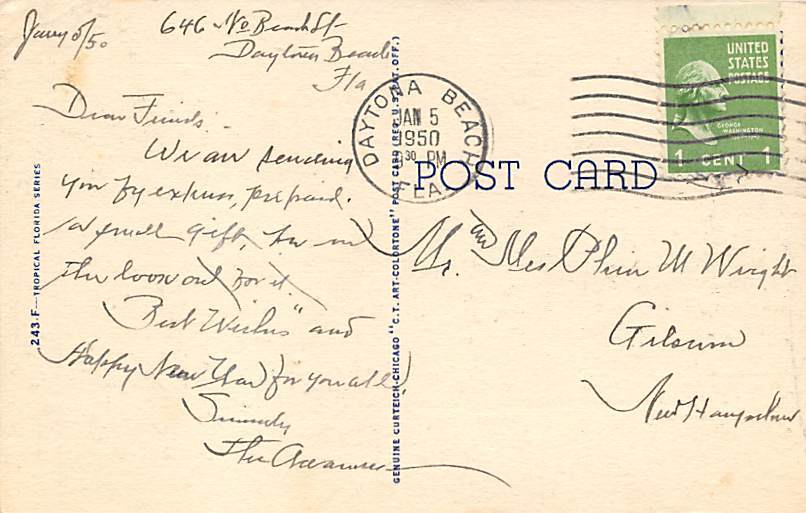 Jany 5/50
646 No Beach St
Daytona Beach
Fla
Dear Friends.
We are sending
you by express, prepaid.
a small gift, be on
the lookout for it.
"Best Wishes" and
Happy New Year for you all
Sincerely
The
Mr. and Mrs M Wright
Gilsum
New Hampshire
POST CARD
DAYTONA BEACH
JAN 5
1950
30 PM
FLA
UNITED
STATES
POSTAGE
GEORGE
WASHINGTON
1 CENT 1
243-F—TROPICAL FLORIDA SERIES
GENUINE CURTEICH-CHICAGO "C.T. ART-COLORTONE" POST CARD (REG. U.S. PAT. OFF.)